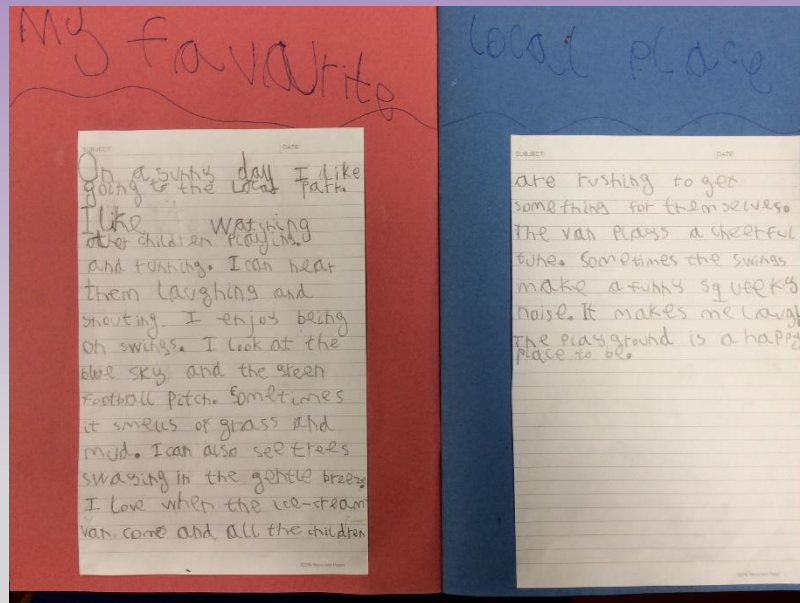 My favourite
SUBJECT: DATE:
On a sunny day I like
going to the local park.
I like watching
other children playing
and running. I can hear
them laughing and
shouting. I enjoy being
on swings. I look at the
blue sky and the green
football pitch. Sometimes
it smells of grass and
mud. I can also see trees
swaying in the gentle breeze
I love when the ice-cream
van come and all the children
100% Recycled Paper
local place
SUBJECT: DATE:
are rushing to get
something for themselves.
The van plays a cheerful
tune. Sometimes the swings
make a funny squeeky
noise. It makes me laugh
The playground is a happy
place to be.
100% Recycled Paper